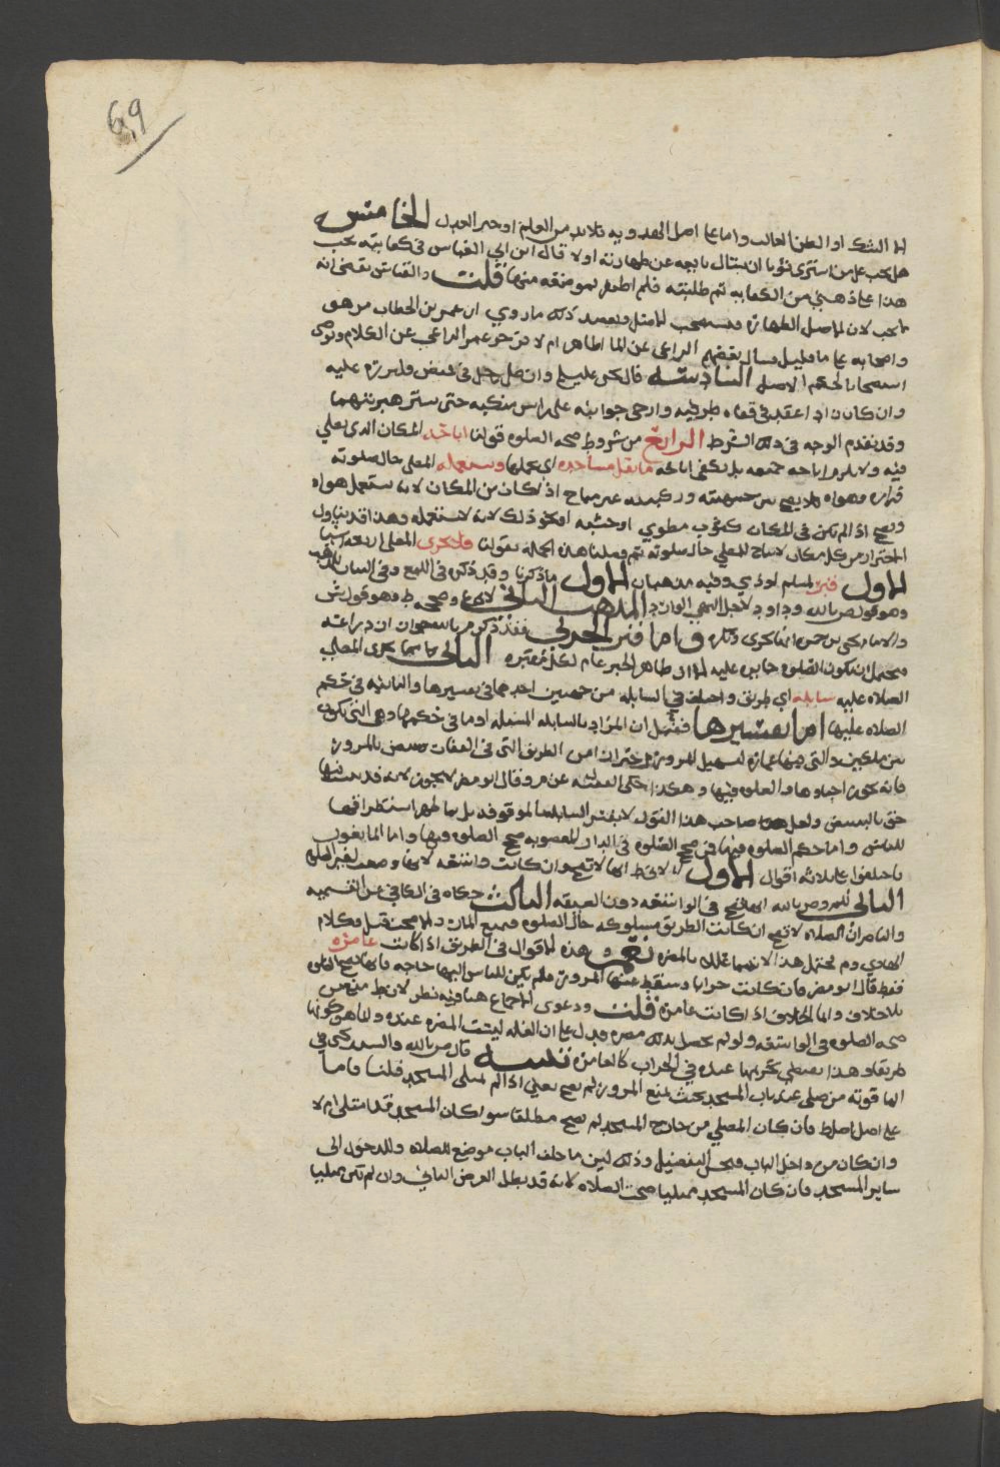 69
الا الشك او الظن الغالب واما على اصل الهدويه فلابد من العلم او خبر العدل الخامس
هل يجب على من استرى ثوبا ان يسال بايعه عن طهارته او لا قال ابن ابي الفوارس في كفايته يجب
هذا على ذهني من الكفايه ثم طلبته فلم اطفر بموضعه منها قلت والقياس يقضى انه
لا يجب لان الاصل الطهارة ويستحب يعضد ذلك ما روي ان عمر بن الخطاب مر هو
واصحابه على ما قليل فسال بعضهم الراعي عن الما اطاهر ام لا عمر الراعي عن الكلام
استصحابا لحكم الاصل السادسه قال وان صلى رجل في قميص عليه
وان كان ازار اعقد في قفاه طرفيه وارخى جوانبه على راس منكبيه حتى ستر
وقد تقدم الوجه في ذلك الشرط الرابع من شروط صحه الصلوه قولنا اباحة المكان الذي يصلي
فيه ولا يلزم اباحه جميعه بل يكفى اباحه ما يقل مساجده اي يحملها ويستعمله المصلي حال صلوته
قراره وهواه فلا يصح غير مباح اذ كان من المكان لانه يستعمل هواه
ويصح اذا لم يكن في المكان كثوب مطوي او خشبه او نحو ذلك لانه لا يستعمله وهذا قد تناول
الاحتراز من كل مكان لا يباح للمصلي حال صلوته ثم فصلنا هذه الجمله بقولنا فلا يجزى المصلي اربعه اشيا
الاول قبر لمسلم او ذمي وفيه مذهبان الاول ما ذكرنا وقد ذكره في اللمع وفي البيان للمذهب
وهو قول ص بالله وداود لاجل النهي الوارد المذهب الثاني
والامام يحيى بن حمزه انها تجزى وتكره واما قبر الحربي فقد ذكر م بالله
يحتمل ان تكون الصلوه جايزه عليه الا ان ظاهر الخبر عام لكل مقبره الثاني مما لا يجزى المصلي
الصلاه عليه سابله اي طريق واختلف في السابله من جهتين احدهما في تفسيرها والثانيه في حكم
الصلاه عليها اما تفسيرها فقيل ان المراد بالسابله المسبله او ما في حكمها وهي التي تكون
بين ملكين والتي فيها عمارة لتسهيل المرور احتراز من الطريق التي في القفار
فانه يجوز احياوها والصلوه فيها وهكذا حكى الفقيه عن م وقال ابو مضر لا يجوز لانه قد ثبت فيها
حق بالسبق ولعل صاحب هذا القول لا يفسر السابله بالموقوفه بل بما ظهر استطراقها
للناس واما حكم الصلوه فيها فمن صحح الصلوه في الدار المغصوبه صحح الصلوه فيها واما المانعون
فاختلفوا على ثلاثه اقوال الاول انها لا تصح وان كانت واسعه لانها وضعت لغير الصلاه
الثاني للم وص بالله انها تصح في الواسعه دون الضيقه الثالث حكاه في الكافي عن القسميه
والناصر ان الصلاه لا تصح ان كانت الطريق مسلوكه حال الصلوه
الهادي وم يحتمل هذا لانهما عللا بالمضره نعم وهذه الاقوال في الطريق اذا كانت عامره
فقط قال ابو مضر فان كانت خرابا وسقط عنها المرور فلم يكن للناس اليها حاجه فانها تصح الصلاه
بلا خلاف وانما الخلاف اذا كانت عامرة قلت ودعوى الاجماع هنا فيه نظر لان ط منع من
صحه الصلوه في الواسعه ولو لم يحصل بذلك مضره فدل على ان العله ليست المضره عنده وانما هي كونها
طريقا وهذا يقتضي تحريمها عنده في الخراب كالعامره تنبيه قال ص بالله والسيد يحيى في
الياقوته من صلى عند باب المسجد بحيث يمنع المرور لم تصح يعني اذا لم يمتلى المسجد قلنا واما
على اصل ط فان كان المصلي من خارج المسجد لم تصح مطلقا سوا كان المسجد قد امتلى ام لا
وان كان من داخل الباب فيحتمل التفصيل وذلك لان ما خلف الباب موضع للصلاه وللدخول الى
ساير المسجد فان كان المسجد ممتليا صحت الصلاه لانه قد بطل الغرض الثاني وان لم يكن ممتليا